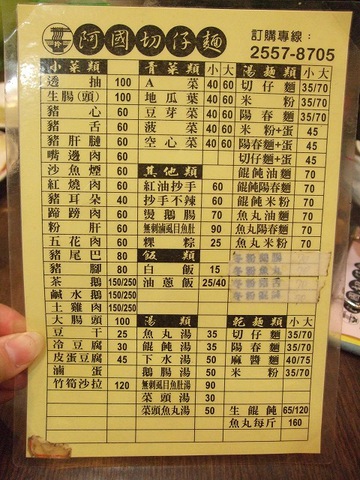 阿國切仔麵
訂購專線：
2557-8705
小菜類
透抽 100
生腸(頭) 100
豬心 60
豬舌 60
豬肝腱 60
嘴邊肉 60
沙魚煙 60
紅燒肉 60
豬耳朵 40
蹄膀肉 60
粉肝 60
五花肉 60
豬尾巴 80
豬腳 80
茶鵝 150/250
鹹水鵝 150/250
土雞肉 150/250
大腸頭 100
豆干 25
冷豆腐 30
皮蛋豆腐 45
滷蛋
竹筍沙拉 120
青菜類 小 大
A菜 40 60
地瓜葉 40 60
豆芽菜 40 60
菠菜 40 60
空心菜 40 60
其他類
紅油抄手 60
抄手不辣 60
燙鵝腸 70
無刺滷虱目魚肚 90
粿粽 25
飯類
白飯 15
油蔥飯 25/40
湯類
魚丸湯 35
餛飩湯 35
下水湯 50
鵝腸湯 50
無刺虱目魚肚湯 90
菜頭湯 30
菜頭魚丸湯 50
湯麵類 小 大
切仔麵 35/70
米粉 35/70
陽春麵 35/70
米粉+蛋 45
陽春麵+蛋 45
切仔麵+蛋 45
餛飩油麵 70
餛飩陽春麵 70
餛飩米粉 70
魚丸油麵 70
魚丸陽春麵 70
魚丸米粉 70
乾麵類 小 大
切仔麵 35/70
陽春麵 35/70
麻醬麵 40/75
米粉 35/70
生餛飩 65/120
魚丸每斤 160